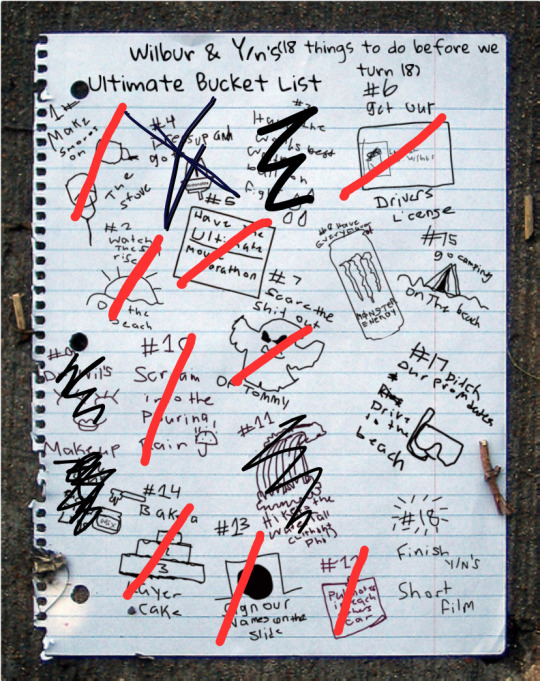 Wilbur & Y/n's (18 things to do before we
turn 18)
Ultimate Bucket List
1#
Make
smores
on
The
stove
#4
Dress up and
go
#3
Have the
Worlds best
fight
#6
get our
Drivers
License
#2
Watch
The sun
rise
the
beach
#5
Have The
Ultimate
Movie
marathon
#8 Have
Every flavor
MONSTER
ENERGY
#15
go camping
on The beach
#7
Scare the
Shit out
OF Tommy
#9
Do Wil's
Makeup
#10
Scream
into the
Pouring
Rain
#11
#17 Ditch
our Prom dates
Drive
to the
beach
the
Waterfall
(without
Phil)
#14
Bake a
3
Layer
Cake
#13
Sign our
Names on the
Slide
#1
Put notes
in each
others
Car
#18
Finish
Y/N's
Short
film